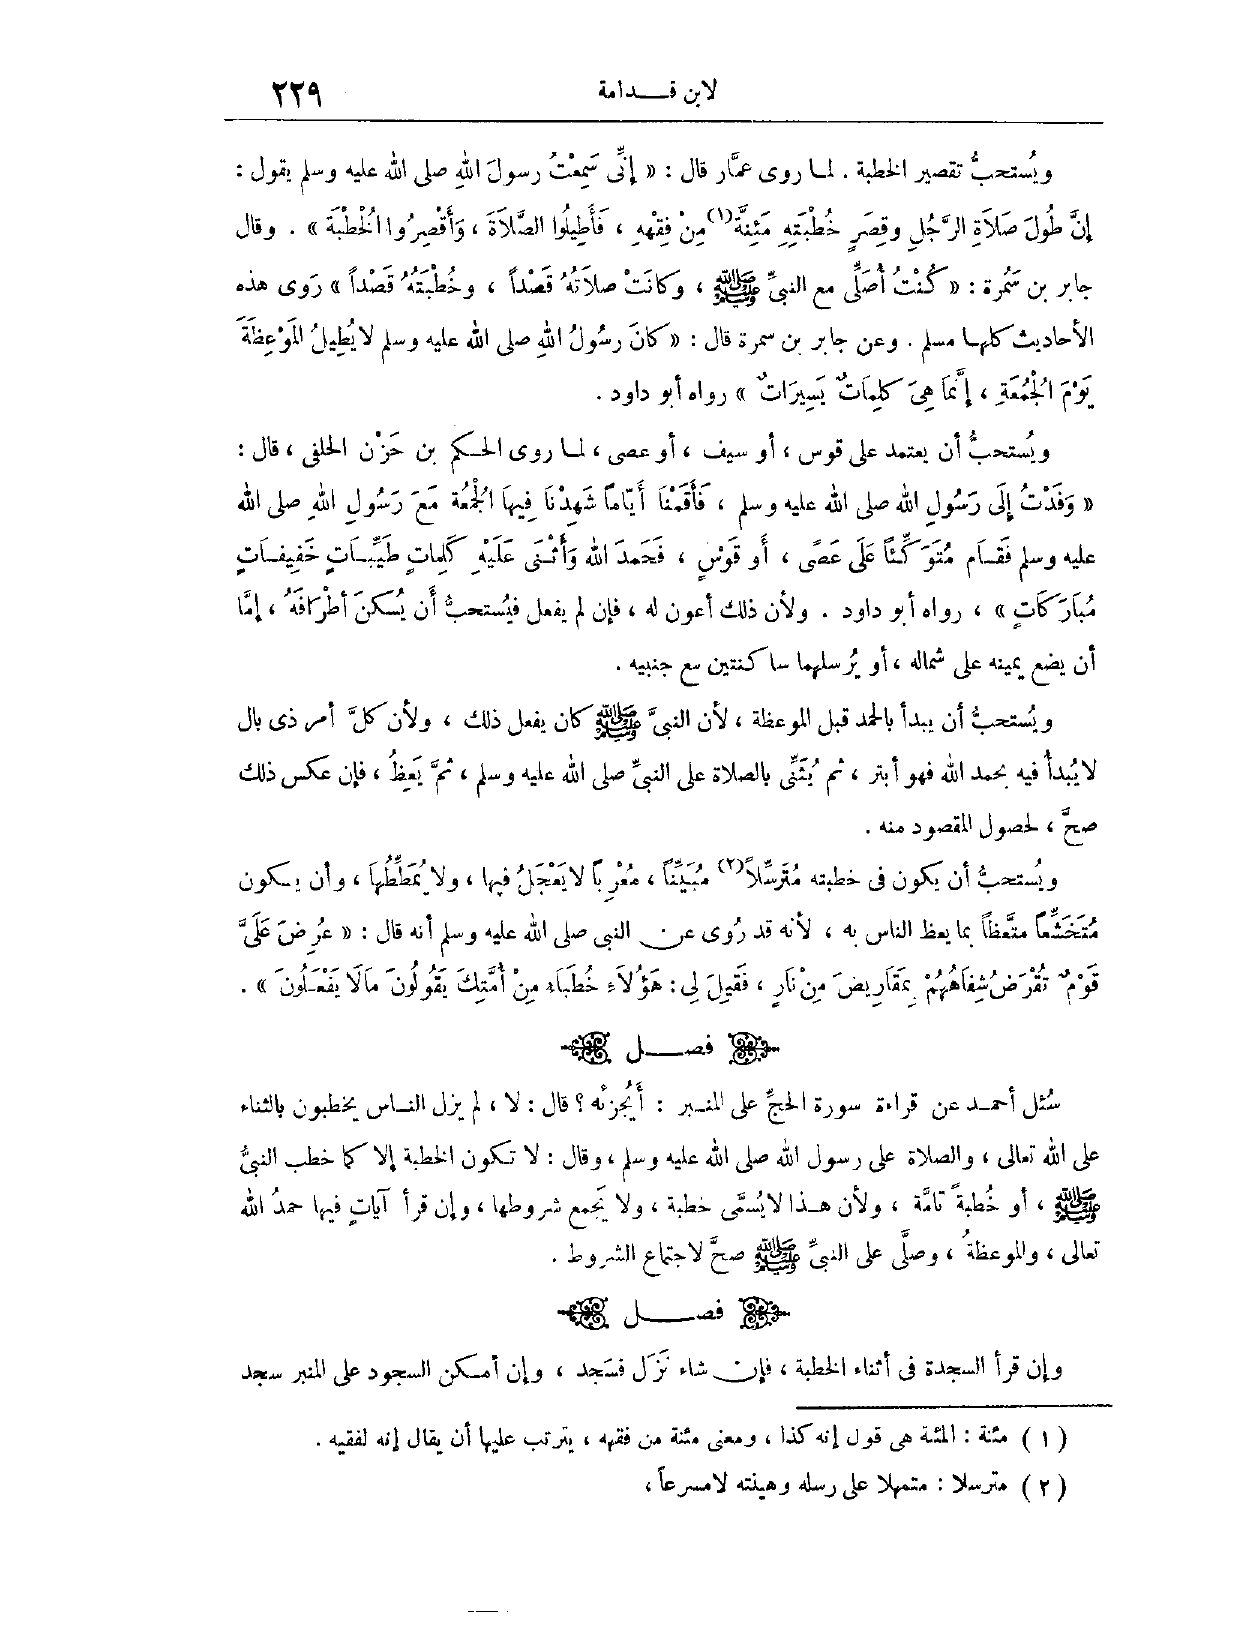 لابن قدامة ٢٢٩
ويُستحبُّ تقصير الخطبة . لما روى عمَّار قال : « إنِّى سَمِعْتُ رسولَ اللهِ صلى الله عليه وسلم يقول :
إنَّ طُولَ صَلاَةِ الرَّجُلِ وقِصَرِ خُطْبَتِهِ مَئِنةٌ(١) مِنْ فِقْهِهِ ، فَأَطِيلُوا الصَّلاَةَ ، وَأَقْصِرُوا الْخُطْبَةَ » . وقال
جابر بن سَمُرة : « كُنْتُ أُصَلِّى مع النبىِّ ﷺ ، وكَانَتْ صلاَتُهُ قَصْداً ، وخُطْبَتُهُ قَصْداً » رَوى هذه
الأحاديث كلها مسلم . وعن جابر بن سمرة قال : « كَانَ رسُولُ اللهِ صلى الله عليه وسلم لا يُطِيلُ الْمَوْعِظَةَ
يَوْمَ الْجُمُعَةِ ، إنَّمَا هِىَ كَلِمَاتٌ يَسِيرَاتٌ » رواه أبو داود .
ويُستحبُّ أن يعتمد على قوس ، أو سيف ، أو عصى ، لما روى الحكم بن حَزْن الحلفى ، قال :
« وَفَدْتُ إلَى رَسُولِ الله صلى الله عليه وسلم ، فَأَقَمْنَا أَيَّاماً شَهِدْنَا فِيهَا الْجُمُعَةَ مَعَ رَسُولِ اللهِ صلى الله
عليه وسلم فَقَام مُتَوَكِّئاً عَلَى عَصًى ، أو قَوْسٍ ، فَحَمِدَ الله وَأَثْنَى عَلَيْهِ كَلِمَاتٍ طَيِّبَاتٍ خَفِيفَاتٍ
مُبَارَكَاتٍ » ، رواه أبو داود . ولأن ذلك أعون له ، فإن لم يفعل فيُستحبُّ أن يُسكِّنَ أطْرَافَهُ ، إمَّا
أن يضع يمينه على شماله ، أو يُرسلهما ساكنتين مع جنبيه .
ويُستحبُّ أن يبدأ بالحمد قبل الموعظة ، لأن النبىَّ ﷺ كان يفعل ذلك ، ولأن كلَّ أمر ذى بال
لا يُبدأُ فيه بحمد الله فهو أبتر ، ثم يُثَنِّى بالصلاة على النبىِّ صلى الله عليه وسلم ، ثمَّ يَعِظُ ، فإن عكس ذلك
صحَّ ، لحصول المقصود منه .
ويُستحبُّ أن يكون فى خطبته مُتَرَسِّلاً(٢) مُبَيِّناً ، مُعْرِباً لا يَعْجَلُ فيها ، ولا يُمَطِّطُها ، وأن يكون
مُتَخَشِّعاً متَّعظاً بما يعظ الناس به ، لأنه قد رُوى عن النبى صلى الله عليه وسلم أنه قال : « عرُِضَ عَلَىَّ
قَوْمٌ تُقْرَضُ شِفَاهُهُمْ بِمَقَارِيضَ مِنْ نَارٍ ، فَقِيلَ لِى : هَؤُلاَءِ خُطَبَاءُ مِنْ أُمَّتِكَ يَقُولُونَ مَالاَ يَفْعَلُونَ » .
فصل
سُئل أحمد عن قراءة سورة الحجِّ على المنبر : أَيُجزئُه ؟ قال : لا ، لم يزل الناس يخطبون بالثناء
على الله تعالى ، والصلاة على رسول الله صلى الله عليه وسلم ، وقال : لا تكون الخطبة إلا كما خطب النبىُّ
ﷺ ، أو خُطبةً تامَّة ، ولأن هذا لا يُسمَّى خطبة ، ولا يَجمع شروطها ، وإن قرأ آياتٍ فيها حمدُ الله
تعالى ، والموعظةُ ، وصلَّى على النبىِّ ﷺ صحَّ لاجتماع الشروط .
فصل
وإن قرأ السجدة فى أثناء الخطبة ، فإن شاء نَزَل فسَجد ، وإن أمكن السجود على المنبر سجد
( ١ ) مئنة : المئنة هى قول إنه كذا ، ومعنى مئنة من فقهه ، يترتب عليها أن يقال إنه لفقيه .
( ٢ ) مترسلا : متمهلا على رسله وهينته لا مسرعاً ،